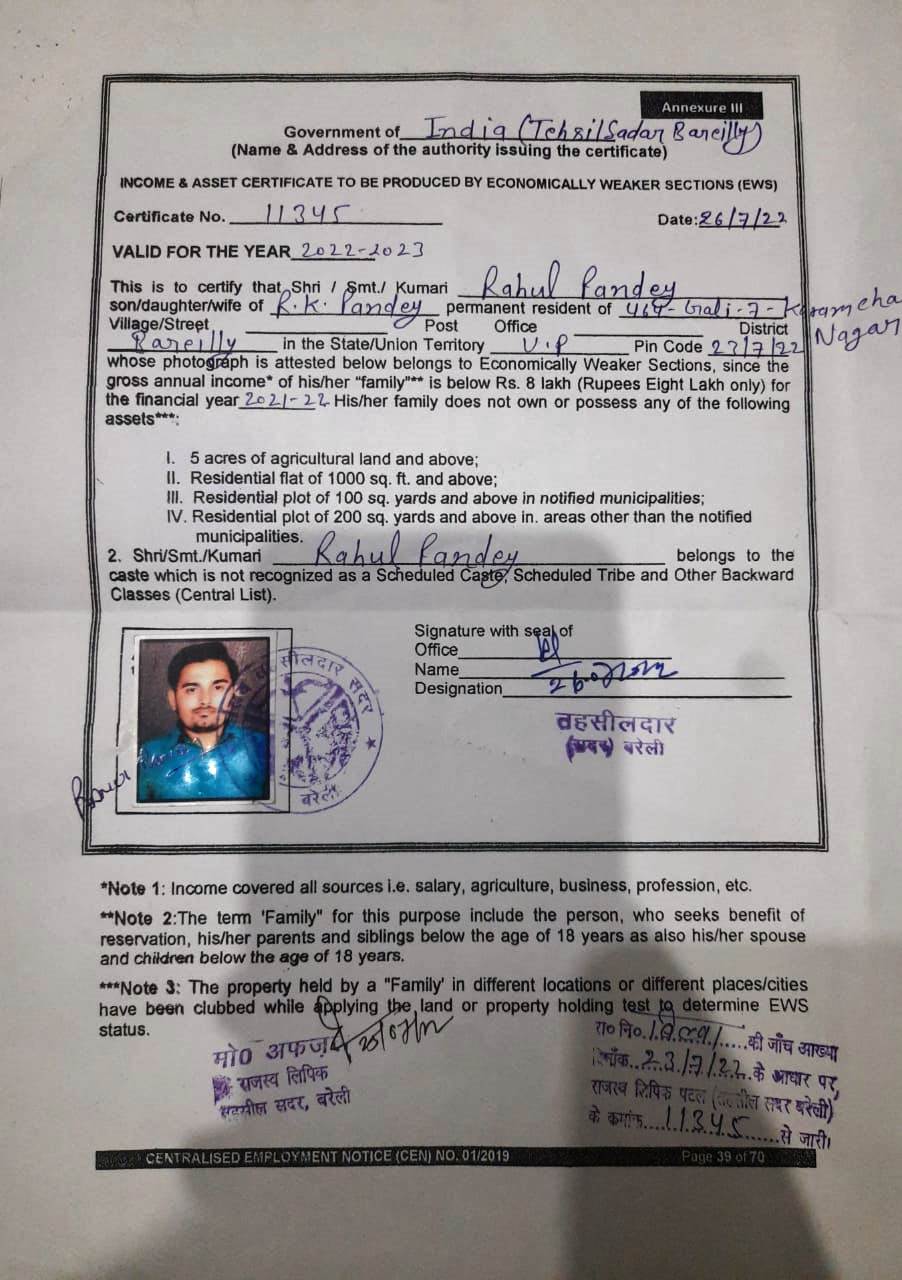 Annexure III
Government of India (Tehsil Sadar Bareilly)
(Name & Address of the authority issuing the certificate)
INCOME & ASSET CERTIFICATE TO BE PRODUCED BY ECONOMICALLY WEAKER SECTIONS (EWS)
Certificate No. 11345 Date: 26/7/22
VALID FOR THE YEAR 2022-2023
This is to certify that Shri / Smt./ Kumari Rahul Pandey
son/daughter/wife of R.K. Pandey permanent resident of 464- Gali-7- Karamcha
Nagar
Village/Street Post Office District
Bareilly in the State/Union Territory U.P Pin Code 23/7/22
whose photograph is attested below belongs to Economically Weaker Sections, since the
gross annual income* of his/her "family"** is below Rs. 8 lakh (Rupees Eight Lakh only) for
the financial year 2021-22 His/her family does not own or possess any of the following
assets***:
I. 5 acres of agricultural land and above;
II. Residential flat of 1000 sq. ft. and above;
III. Residential plot of 100 sq. yards and above in notified municipalities;
IV. Residential plot of 200 sq. yards and above in. areas other than the notified
municipalities.
2. Shri/Smt./Kumari Rahul Pandey belongs to the
caste which is not recognized as a Scheduled Caste, Scheduled Tribe and Other Backward
Classes (Central List).
Signature with seal of
Office
Name
Designation
तहसीलदार
(सदर) बरेली
तहसीलदार सदर
बरेली
*Note 1: Income covered all sources i.e. salary, agriculture, business, profession, etc.
**Note 2:The term 'Family" for this purpose include the person, who seeks benefit of
reservation, his/her parents and siblings below the age of 18 years as also his/her spouse
and children below the age of 18 years.
***Note 3: The property held by a "Family' in different locations or different places/cities
have been clubbed while applying the land or property holding test to determine EWS
status.
मो0 अफज़
राजस्व लिपिक
तहसील सदर, बरेली
रा० नि०.....की जाँच आख्या
दिनाँक..23/7/22..के आधार पर,
राजस्व लिपिक पटल (तहसील सदर बरेली)
के क्रमांक....11345......से जारी।
CENTRALISED EMPLOYMENT NOTICE (CEN) NO. 01/2019 Page 39 of 70